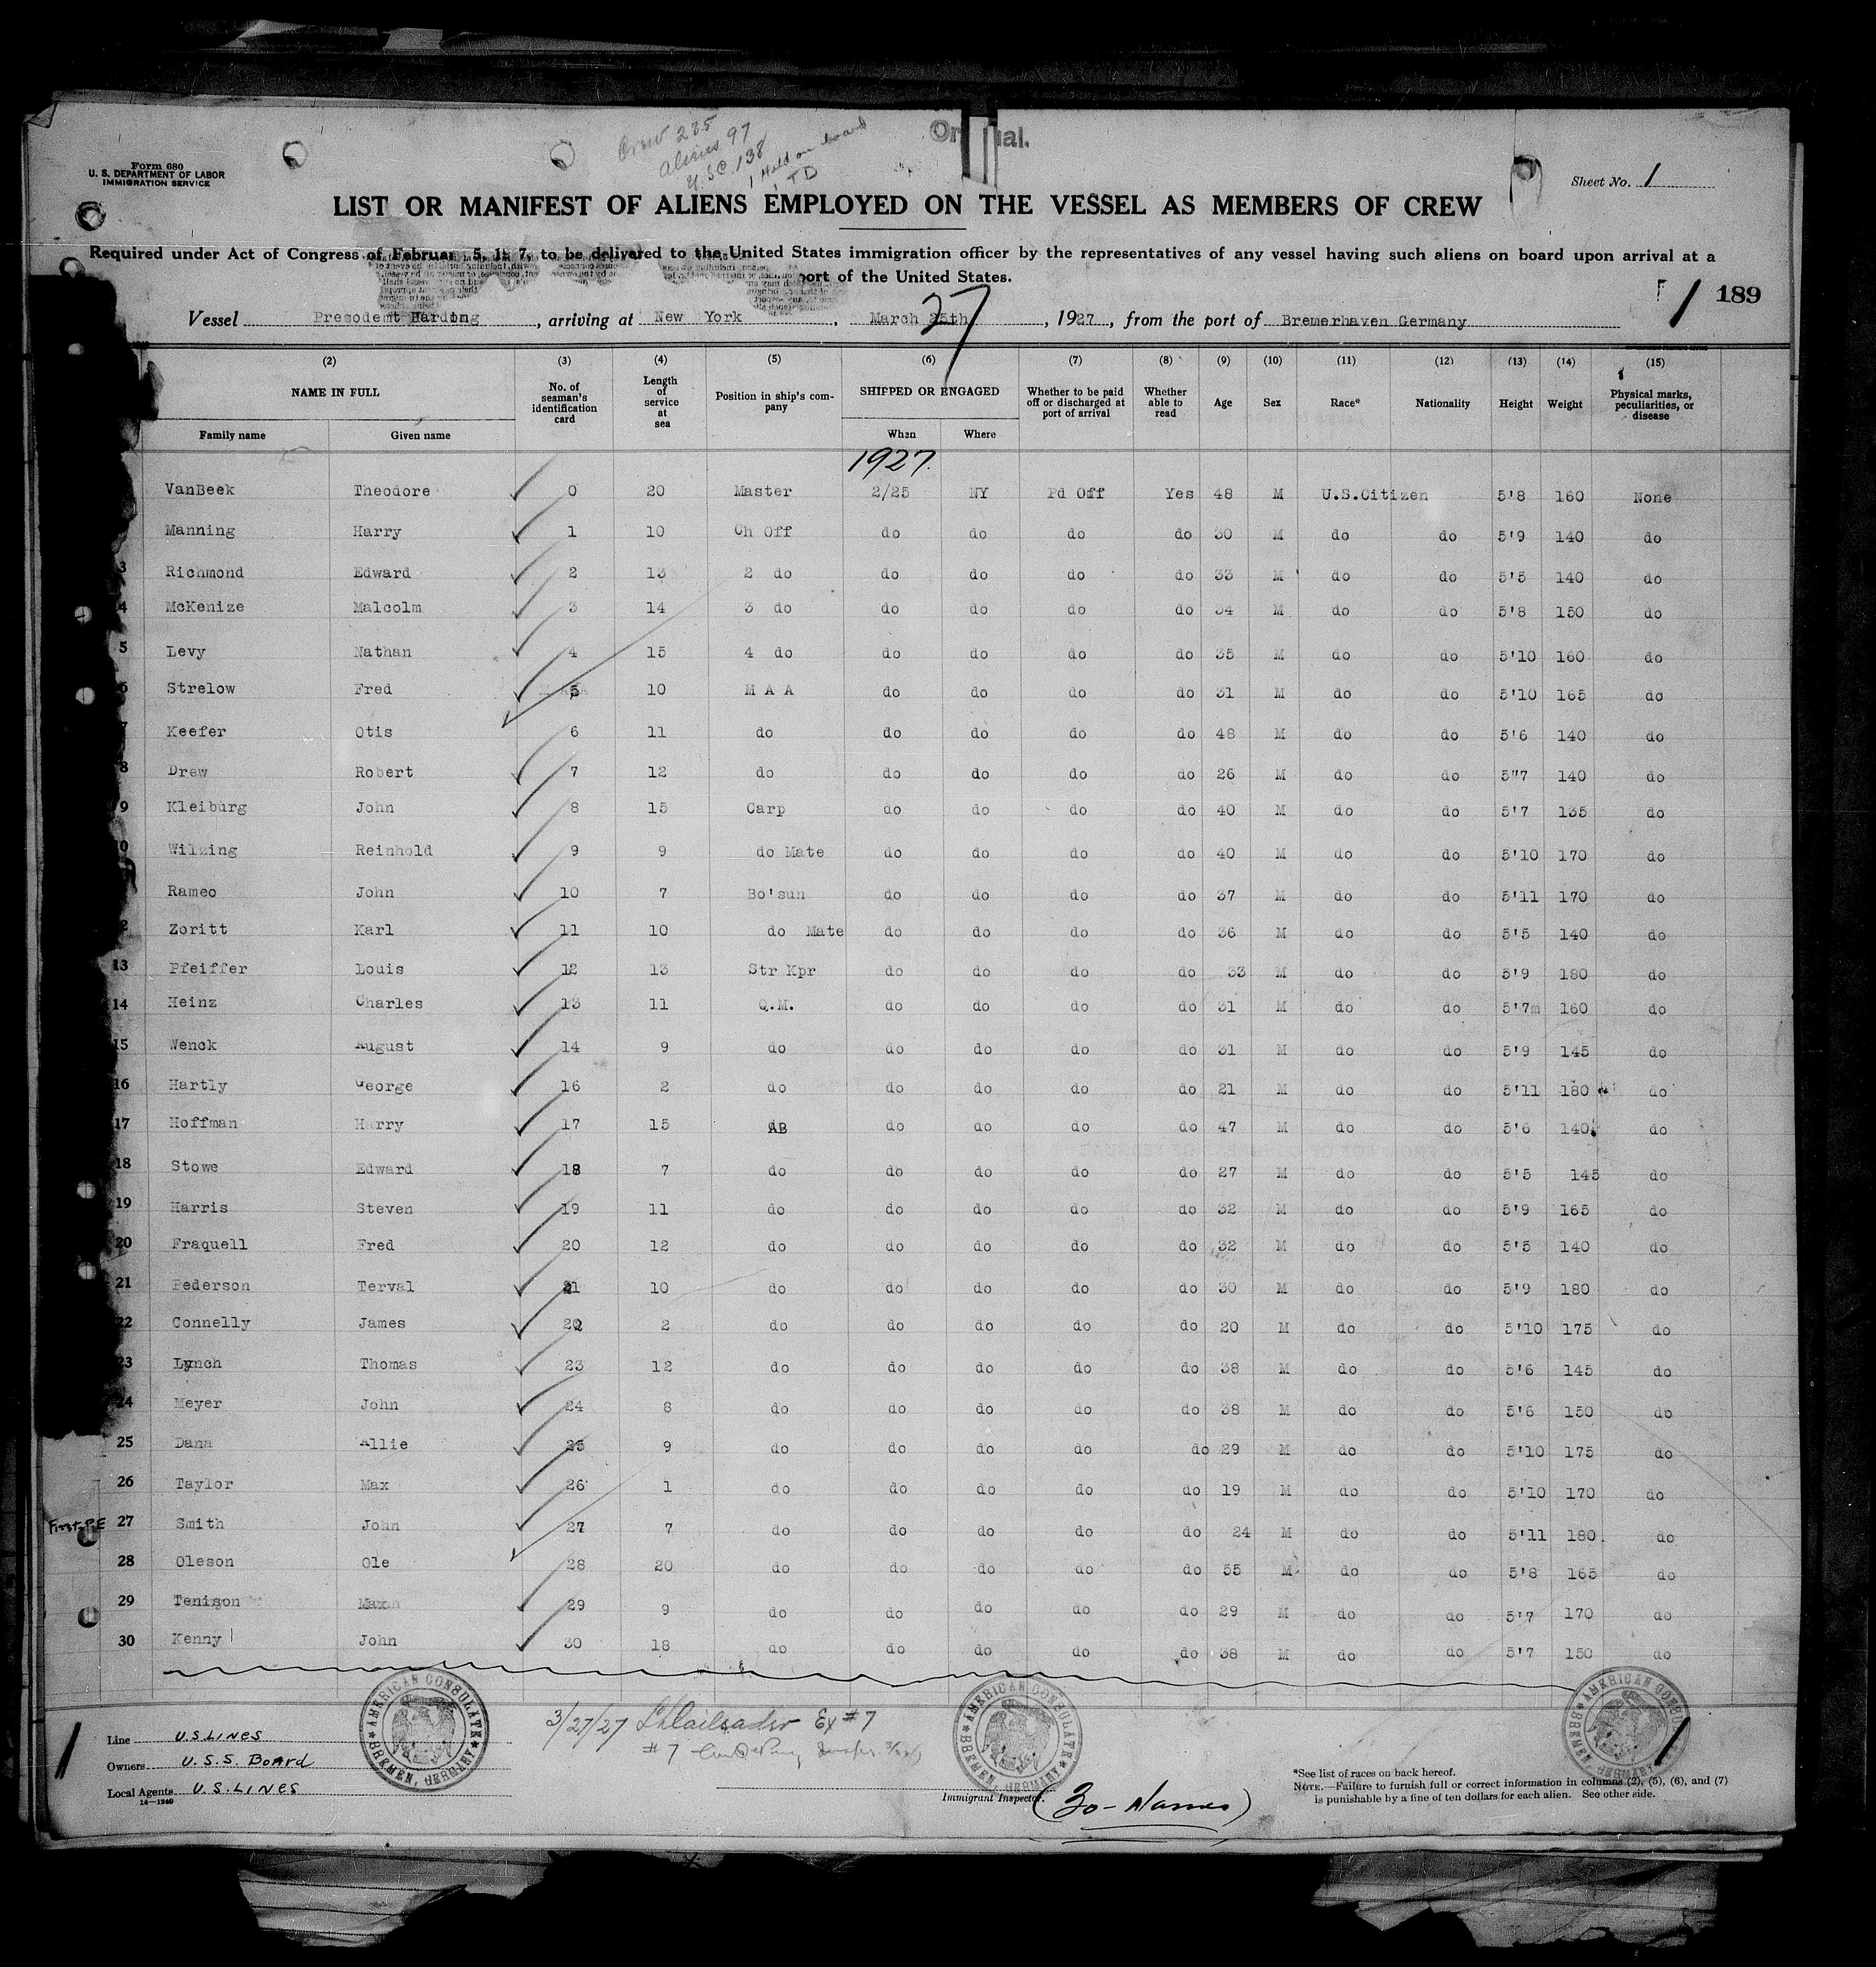 Crew 235
aliens 97
U.S.C. 138
1 Held on board
1 TD
Form 680
U. S. DEPARTMENT OF LABOR
IMMIGRATION SERVICE
Sheet No. 1
LIST OR MANIFEST OF ALIENS EMPLOYED ON THE VESSEL AS MEMBERS OF CREW
Required under Act of Congress of Februar 5, 1 7, to be delivered to the United States immigration officer by the representatives of any vessel having such aliens on board upon arrival at a
port of the United States.
1 189
Vessel Presodent Harding, arriving at New York, March 25th 27, 1927, from the port of Bremerhaven Germany
(2) (3) (4) (5) (6) (7) (8) (9) (10) (11) (12) (13) (14) (15)
NAME IN FULL No. of seaman's identification card Length of service at sea Position in ship's company SHIPPED OR ENGAGED Whether to be paid off or discharged at port of arrival Whether able to read Age Sex Race* Nationality Height Weight Physical marks, peculiarities, or disease
Family name Given name When Where
1927.
VanBeek Theodore 0 20 Master 2/25 NY Pd Off Yes 48 M U.S.Citizen 5'8 160 None
Manning Harry 1 10 Ch Off do do do do 30 M do do 5'9 140 do
3 Richmond Edward 2 13 2 do do do do do 33 M do do 5'5 140 do
4 McKenize Malcolm 3 14 3 do do do do do 34 M do do 5'8 150 do
5 Levy Nathan 4 15 4 do do do do do 35 M do do 5'10 160 do
6 Strelow Fred 5 10 M A A do do do do 31 M do do 5'10 165 do
7 Keefer Otis 6 11 do do do do do 48 M do do 5'6 140 do
8 Drew Robert 7 12 do do do do do 26 M do do 5"7 140 do
9 Kleiburg John 8 15 Carp do do do do 40 M do do 5'7 135 do
0 Wilzing Reinhold 9 9 do Mate do do do do 40 M do do 5'10 170 do
Rameo John 10 7 Bo'sun do do do do 37 M do do 5'11 170 do
2 Zoritt Karl 11 10 do Mate do do do do 36 M do do 5'5 140 do
13 Pfeiffer Louis 12 13 Str Kpr do do do do 33 M do do 5'9 180 do
14 Heinz Charles 13 11 Q.M. do do do do 31 M do do 5'7m 160 do
15 Wenck August 14 9 do do do do do 31 M do do 5'9 145 do
16 Hartly George 16 2 do do do do do 21 M do do 5'11 180 do
17 Hoffman Harry 17 15 AB do do do do 47 M do do 5'6 140 do
18 Stowe Edward 18 7 do do do do do 27 M do do 5'5 145 do
19 Harris Steven 19 11 do do do do do 32 M do do 5'9 165 do
20 Fraquell Fred 20 12 do do do do do 32 M do do 5'5 140 do
21 Pederson Terval 21 10 do do do do do 30 M do do 5'9 180 do
22 Connelly James 22 2 do do do do do 20 M do do 5'10 175 do
23 Lynch Thomas 23 12 do do do do do 38 M do do 5'6 145 do
24 Meyer John 24 8 do do do do do 38 M do do 5'6 150 do
25 Dana Allie 25 9 do do do do do 29 M do do 5'10 175 do
26 Taylor Max 26 1 do do do do do 19 M do do 5'10 170 do
First P.E 27 Smith John 27 7 do do do do do 24 M do do 5'11 180. do
28 Oleson Ole 28 20 do do do do do 55 M do do 5'8 165 do
29 Tenison Max 29 9 do do do do do 29 M do do 5'7 170 do
30 Kenny John 30 18 do do do do do 38 M do do 5'7 150 do
AMERICAN CONSULATE BREMEN, GERMANY
AMERICAN CONSULATE BREMEN, GERMANY
AMERICAN CONSULATE BREMEN, GERMANY
3/27/27 Ex #7
#7
1 Line U.S LINES
Owners U.S.S. BOARD
Local Agents U.S.LINES
14—1240
Immigrant Inspector.
(30 - Names)
1
*See list of races on back hereof.
NOTE.—Failure to furnish full or correct information in columns (2), (5), (6), and (7)
is punishable by a fine of ten dollars for each alien. See other side.